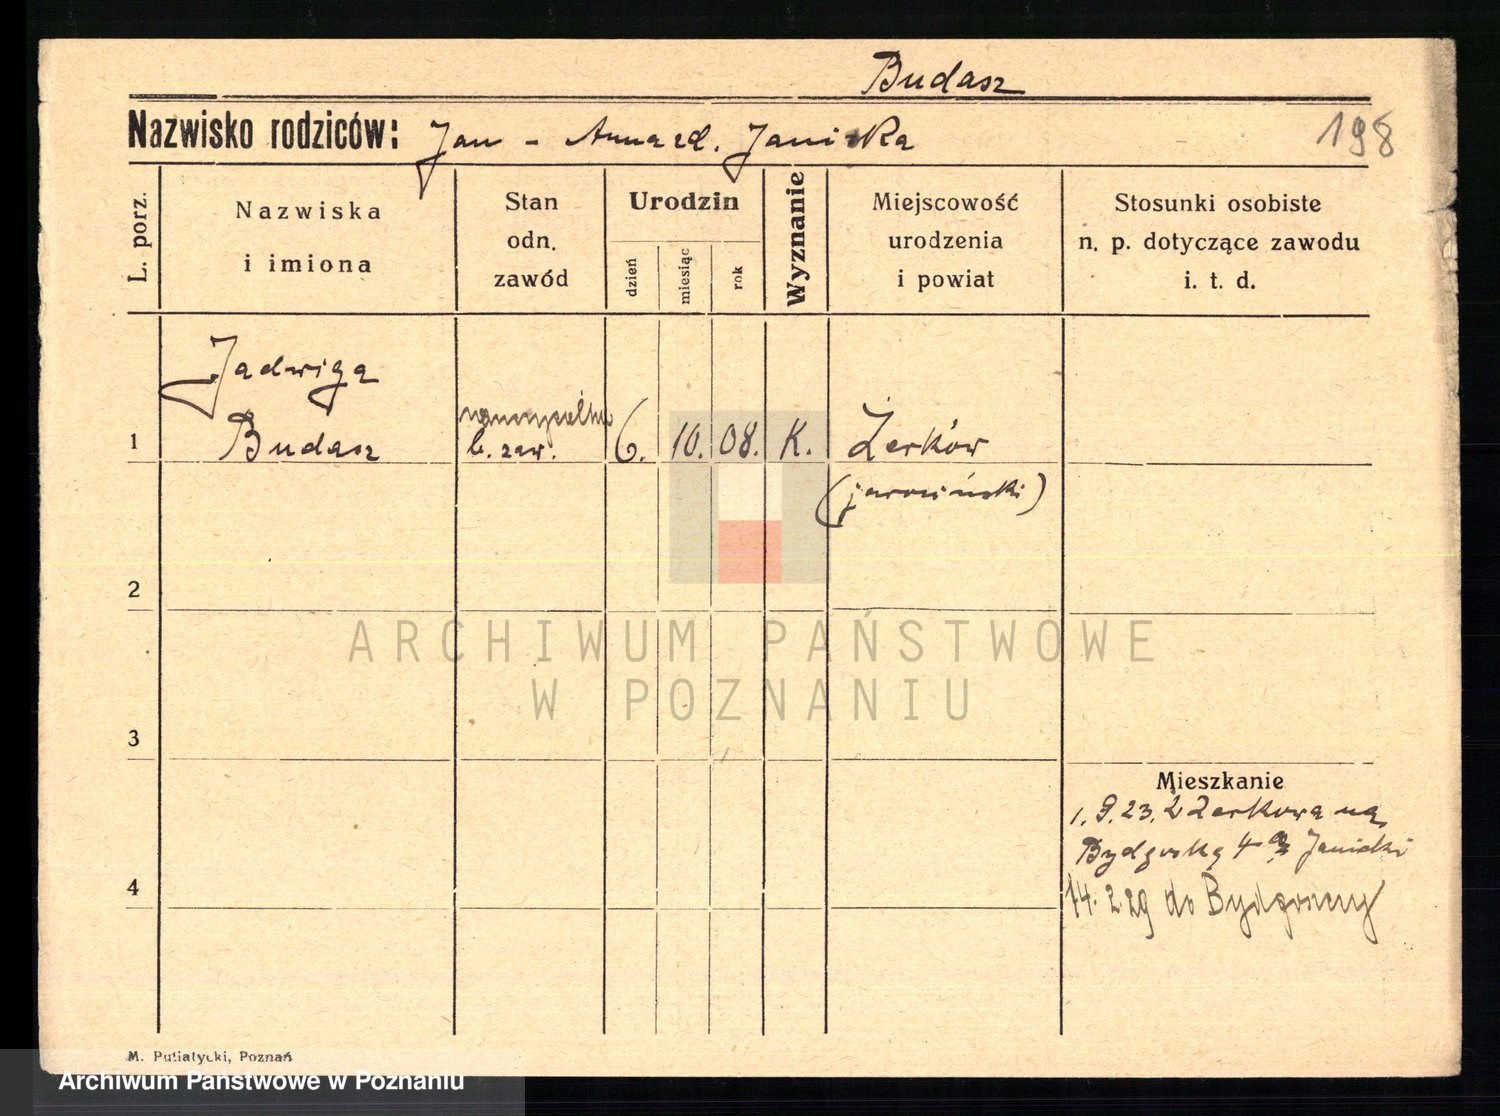 Budasz
Nazwisko rodziców: Jan - Anna zd. Janicka
198
L. porz.
Nazwiska
i imiona
Stan
odn.
zawód
Urodzin
dzień
miesiąc
rok
Wyznanie
Miejscowość
urodzenia
i powiat
Stosunki osobiste
n. p. dotyczące zawodu
i. t. d.
Jadwiga
1 Budasz
b. zaw.
6. 10. 08. K. Żerków
(jarociński)
2
ARCHIWUM PAŃSTWOWE
W POZNANIU
3
Mieszkanie
1. 9. 23. z Żerkowa na
Bydgoską 4 Janicki
4
14. 2. 29 do Bydgoszczy
M. Putiatycki, Poznań
Archiwum Państwowe w Poznaniu